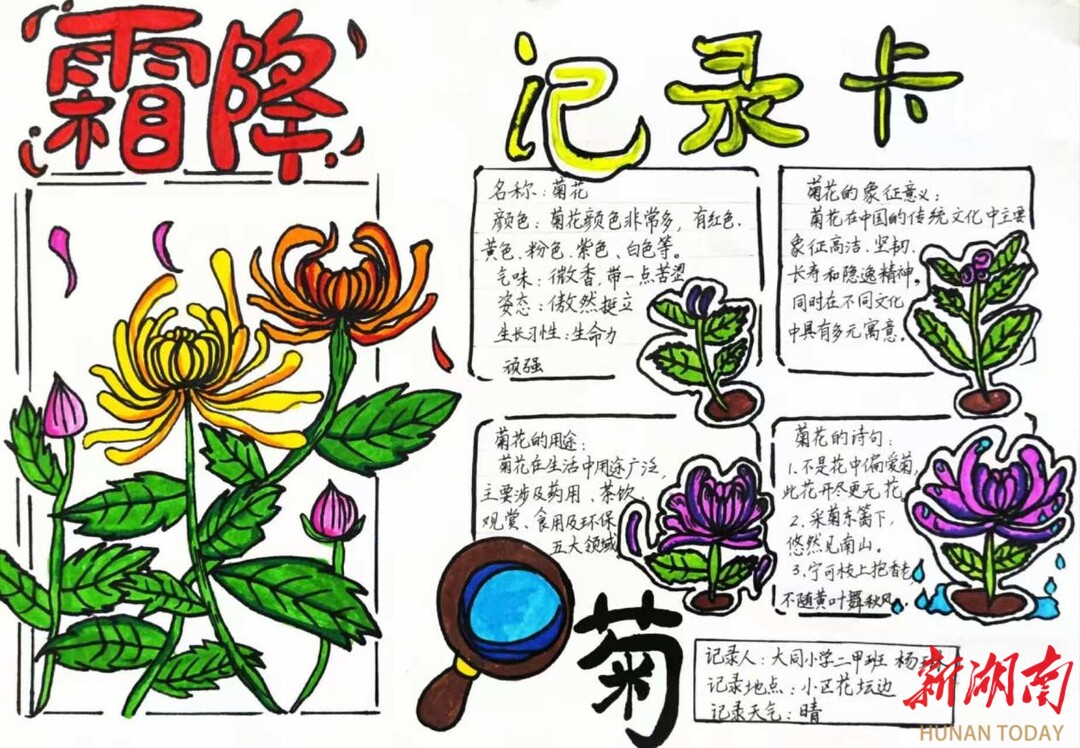 霜降
记录卡
名称：菊花
颜色：菊花颜色非常多，有红色、
黄色、粉色、紫色、白色等。
气味：微香，带一点苦涩
姿态：傲然挺立
生长习性：生命力
顽强
菊花的象征意义：
菊花在中国的传统文化中主要
象征高洁、坚韧、
长寿和隐逸精神。
同时在不同文化
中具有多元寓意。
菊花的用途：
菊花在生活中用途广泛，
主要涉及药用、茶饮、
观赏、食用及环保
五大领域
菊花的诗句：
1.不是花中偏爱菊，
此花开尽更无花
2.采菊东篱下，
悠然见南山。
3.宁可枝上抱香老
不随黄叶舞秋风。
菊
记录人：大同小学二甲班 杨
记录地点：小区花坛边
记录天气：晴
新湖南
HUNAN TODAY